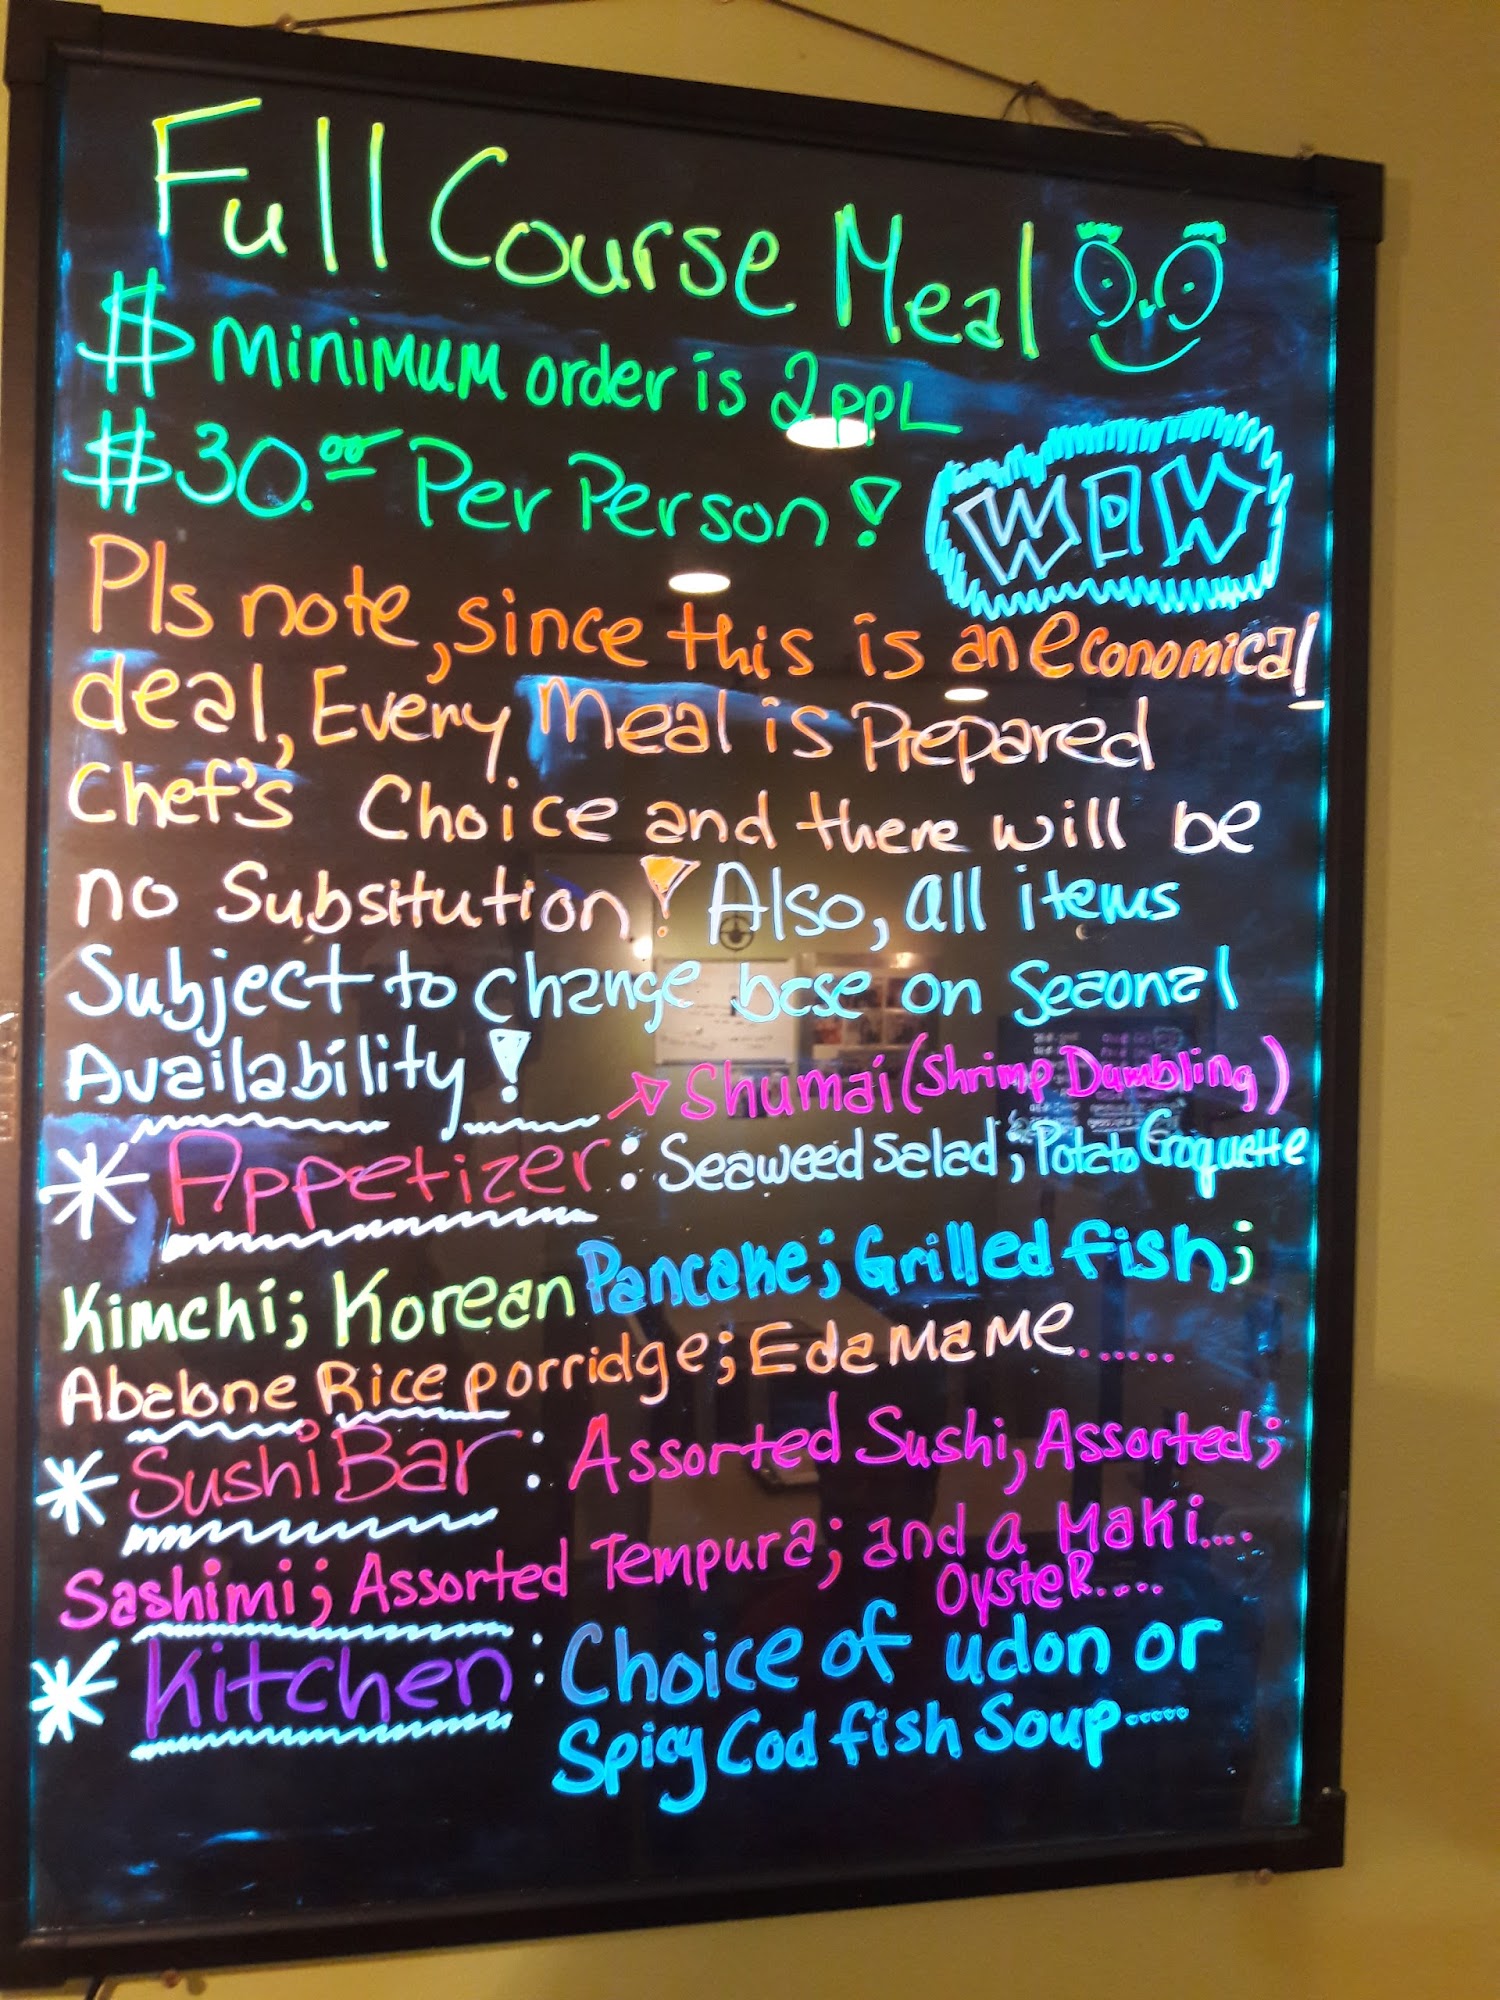 Full Course Meal
$ Minimum order is 2ppL
$30.00 Per Person!
WOW
Pls note, since this is an economical
deal, Every Meal is Prepared
Chef's Choice and there will be
no Subsitution! Also, all items
Subject to change base on Seaonal
Availability!
Shumai (Shrimp Dumbling)
* Appetizer: Seaweed Salad; Potato Croquette
Kimchi; Korean Pancake; Grilled fish;
Abalone Rice porridge; Edamame......
* Sushi Bar: Assorted Sushi, Assorted;
Sashimi; Assorted Tempura; and a Maki....
Oyster....
* Kitchen: Choice of udon or
Spicy Cod fish Soup.....